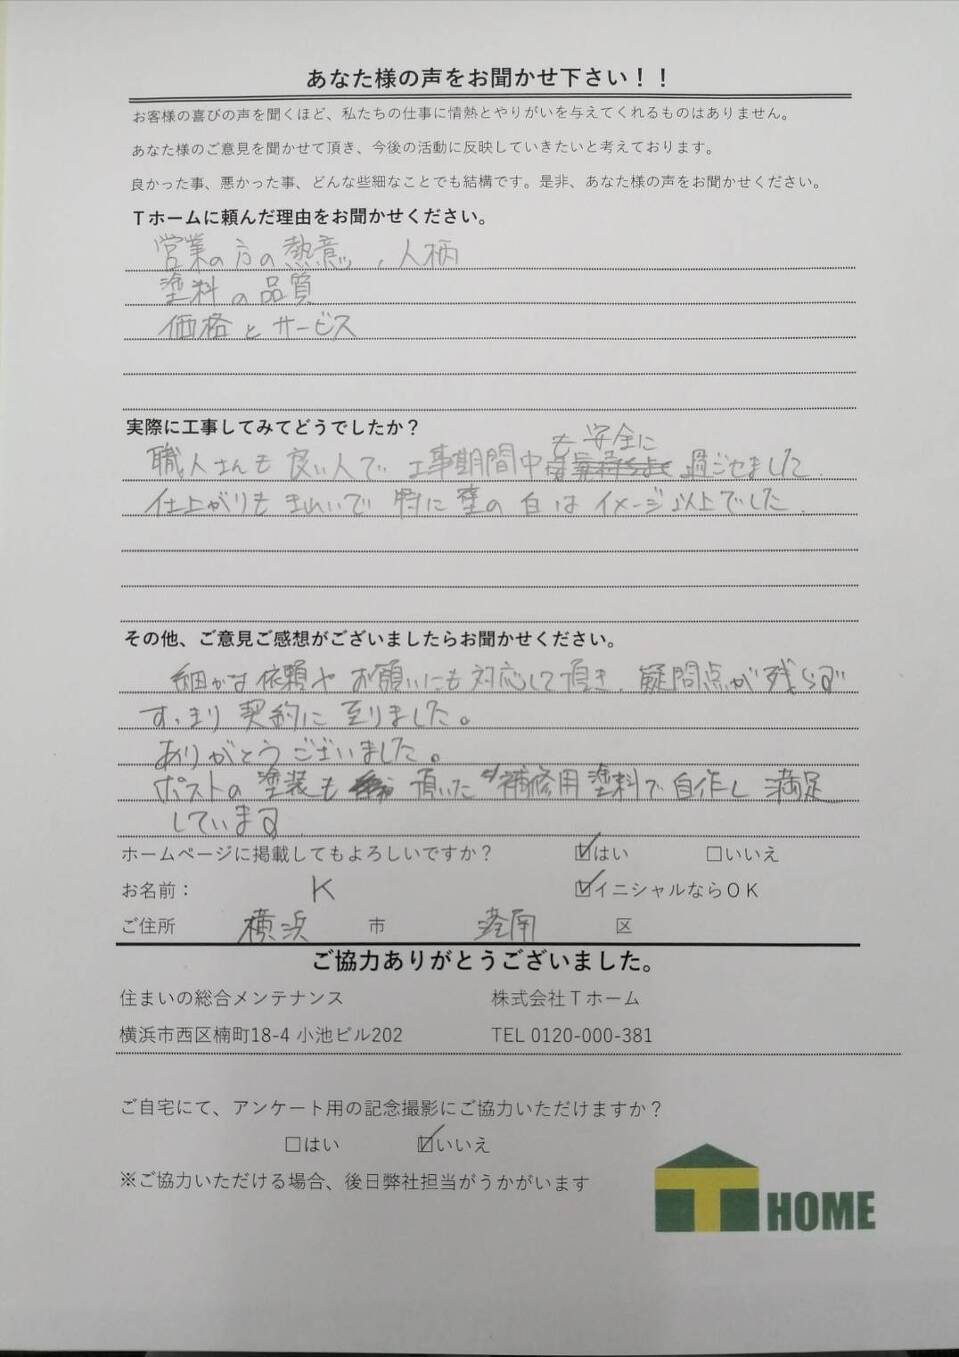 あなた様の声をお聞かせ下さい！！
お客様の喜びの声を聞くほど、私たちの仕事に情熱とやりがいを与えてくれるものはありません。
あなた様のご意見を聞かせて頂き、今後の活動に反映していきたいと考えております。
良かった事、悪かった事、どんな些細なことでも結構です。是非、あなた様の声をお聞かせください。
Ｔホームに頼んだ理由をお聞かせください。
営業の方の熱意、人柄
塗料の品質
価格とサービス
実際に工事してみてどうでしたか？
職人さんも良い人で工事期間中も安全に過ごせました.
仕上がりもきれいで特に壁の白はイメージ以上でした.
その他、ご意見ご感想がございましたらお聞かせください。
細かな依頼やお願いにも対応して頂き、疑問点が残らず
すっきり契約に至りました。
ありがとうございました。
ポストの塗装も頂いた補修用塗料で自作し満足
しています
ホームページに掲載してもよろしいですか？ ☑はい □いいえ
お名前： K ☑イニシャルならＯＫ
ご住所 横浜 市 港南 区
ご協力ありがとうございました。
住まいの総合メンテナンス 株式会社Ｔホーム
横浜市西区楠町18-4 小池ビル202 TEL 0120-000-381
ご自宅にて、アンケート用の記念撮影にご協力いただけますか？
□はい ☑いいえ
※ご協力いただける場合、後日弊社担当がうかがいます
T HOME